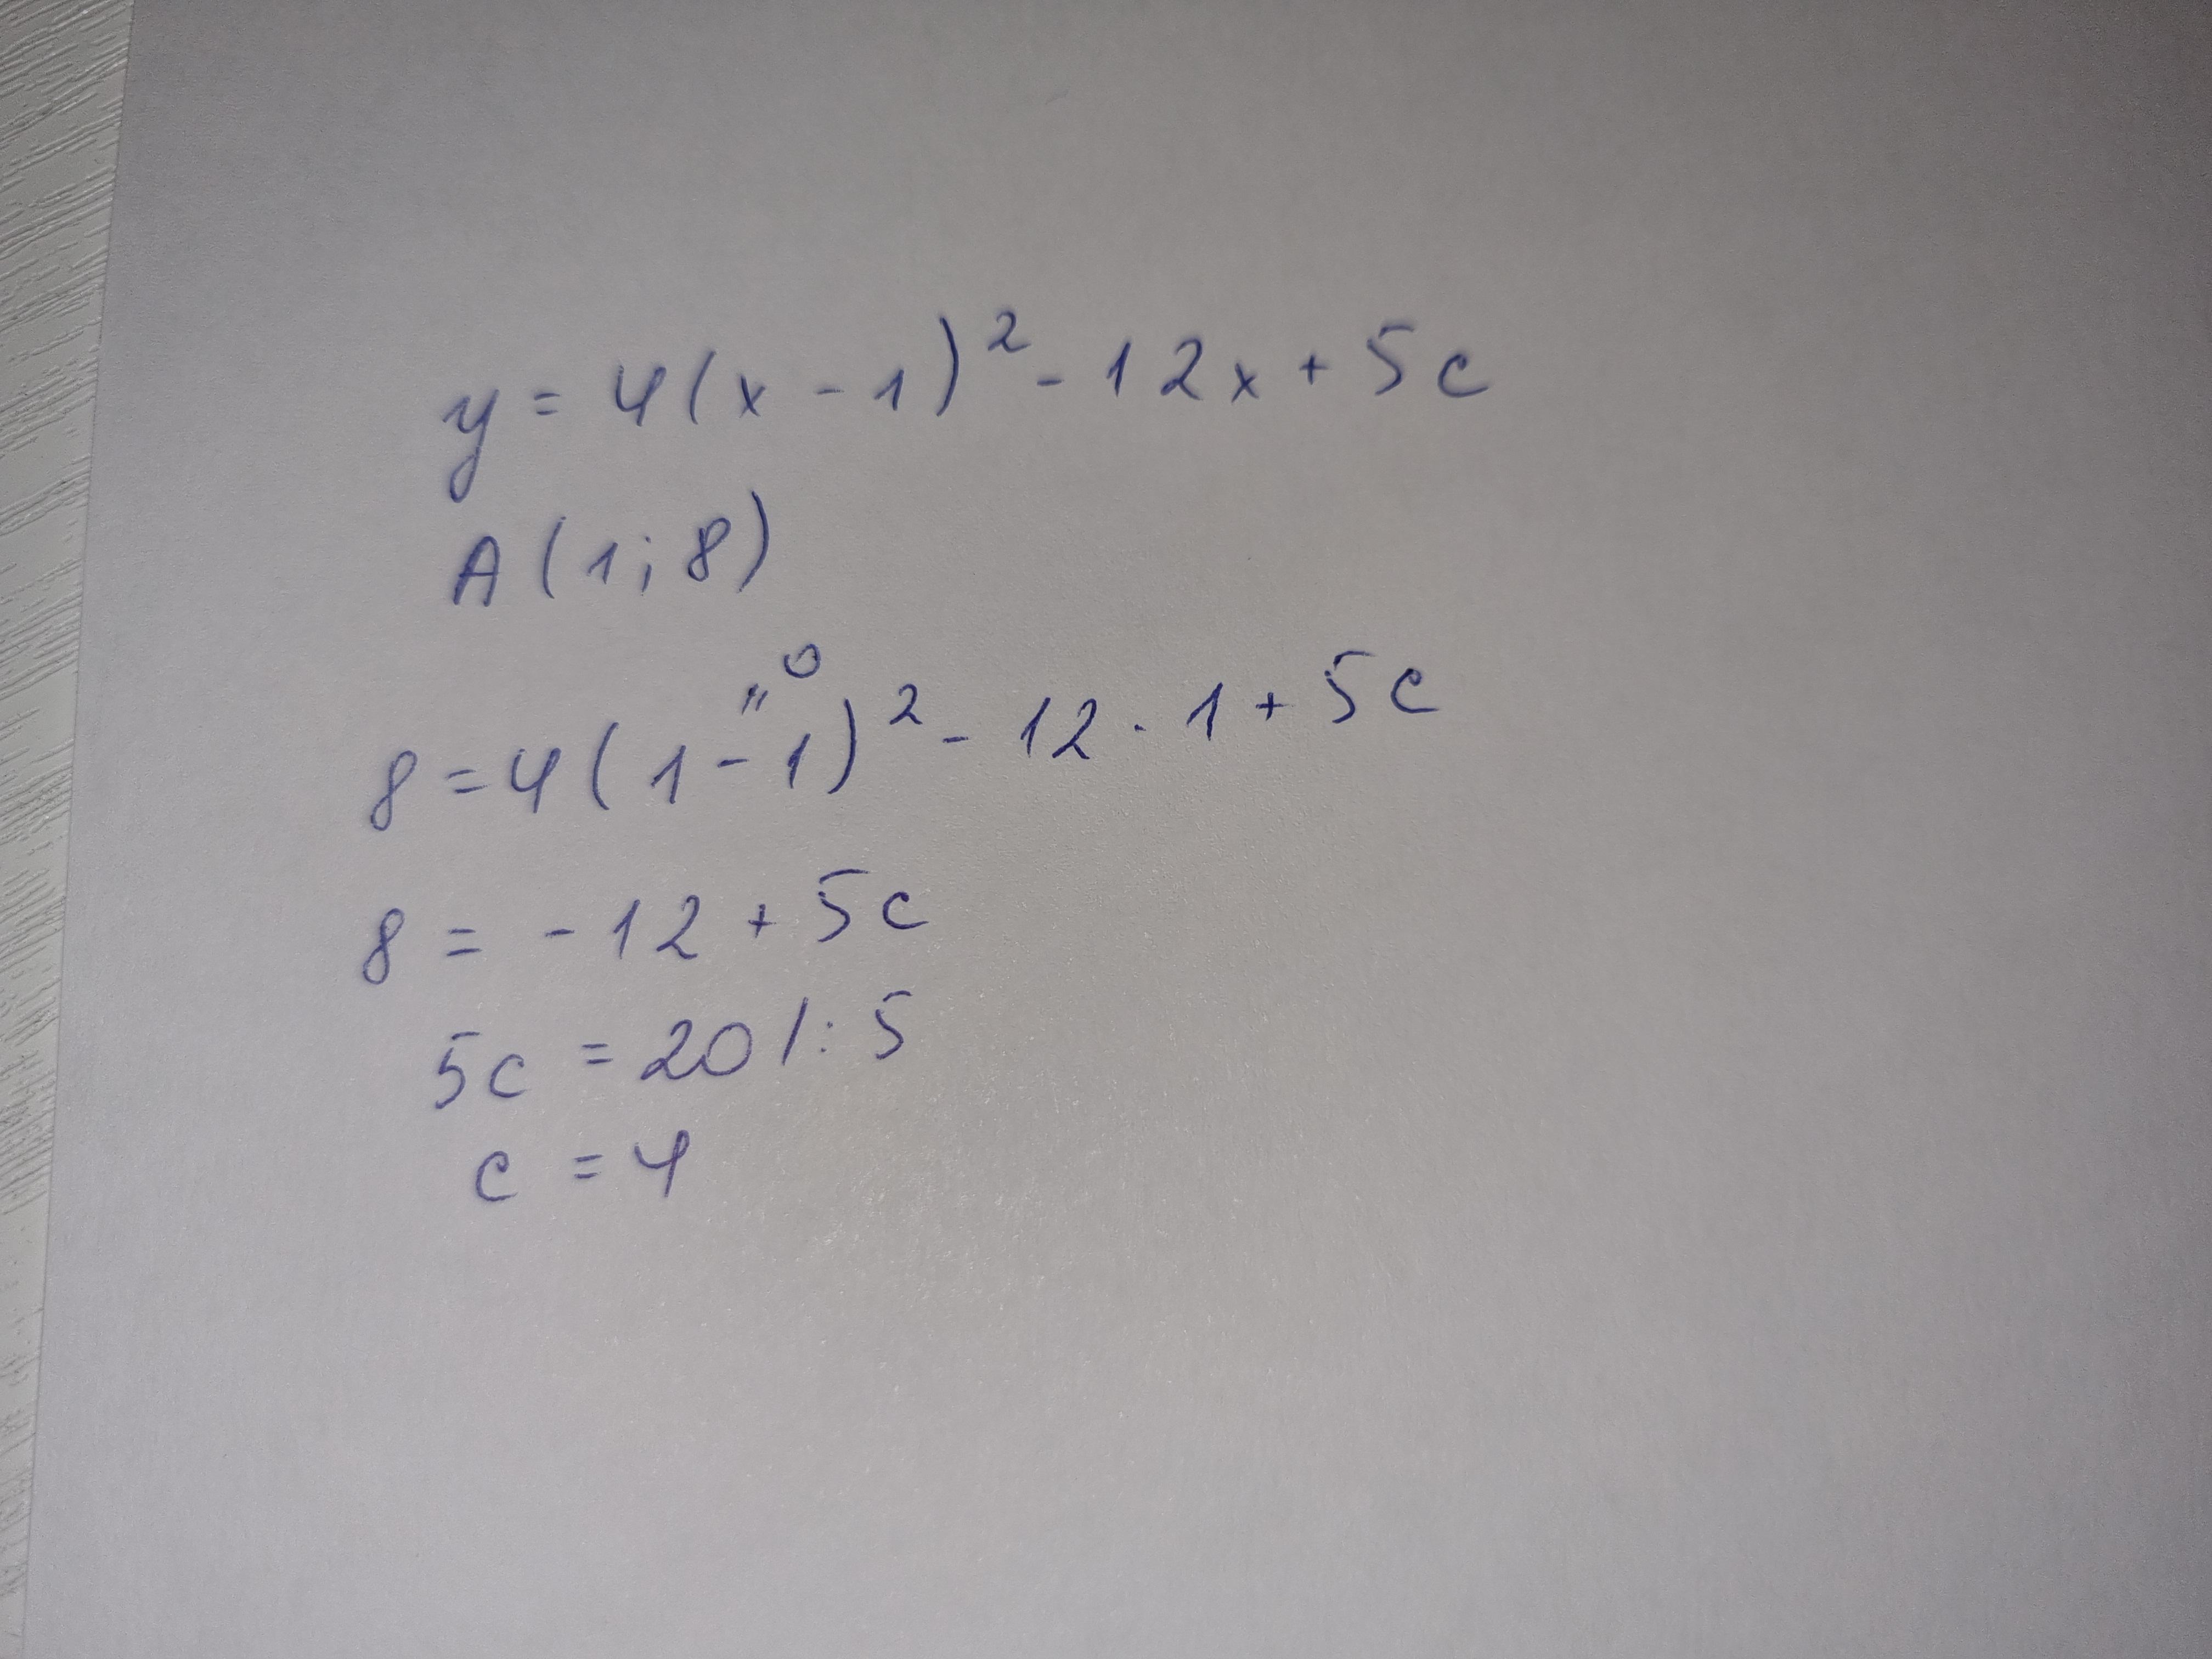 y = 4(x - 1)² - 12x + 5c
A(1; 8)
" 0
8 = 4(1 - 1)² - 12 · 1 + 5c
8 = - 12 + 5c
5c = 20 /: 5
c = 4